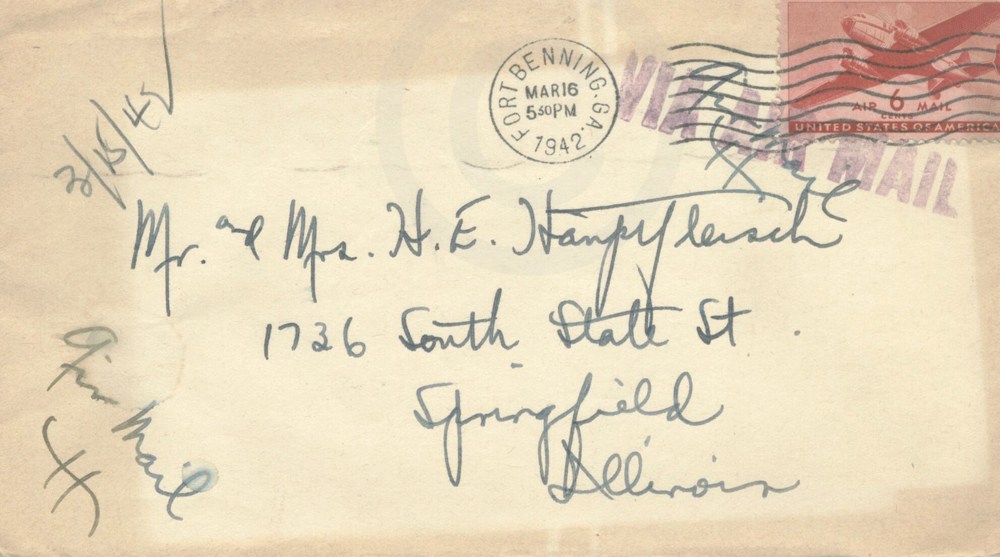 3/15/42
FORT BENNING. GA.
MAR 16
5 30 PM
1942
VIA AIR MAIL
Air Mail
AIR 6 MAIL
CENTS
UNITED STATES OF AMERICA
Mr. and Mrs. H. E.
1736 South State St.
Springfield
Illinois
Air Mail